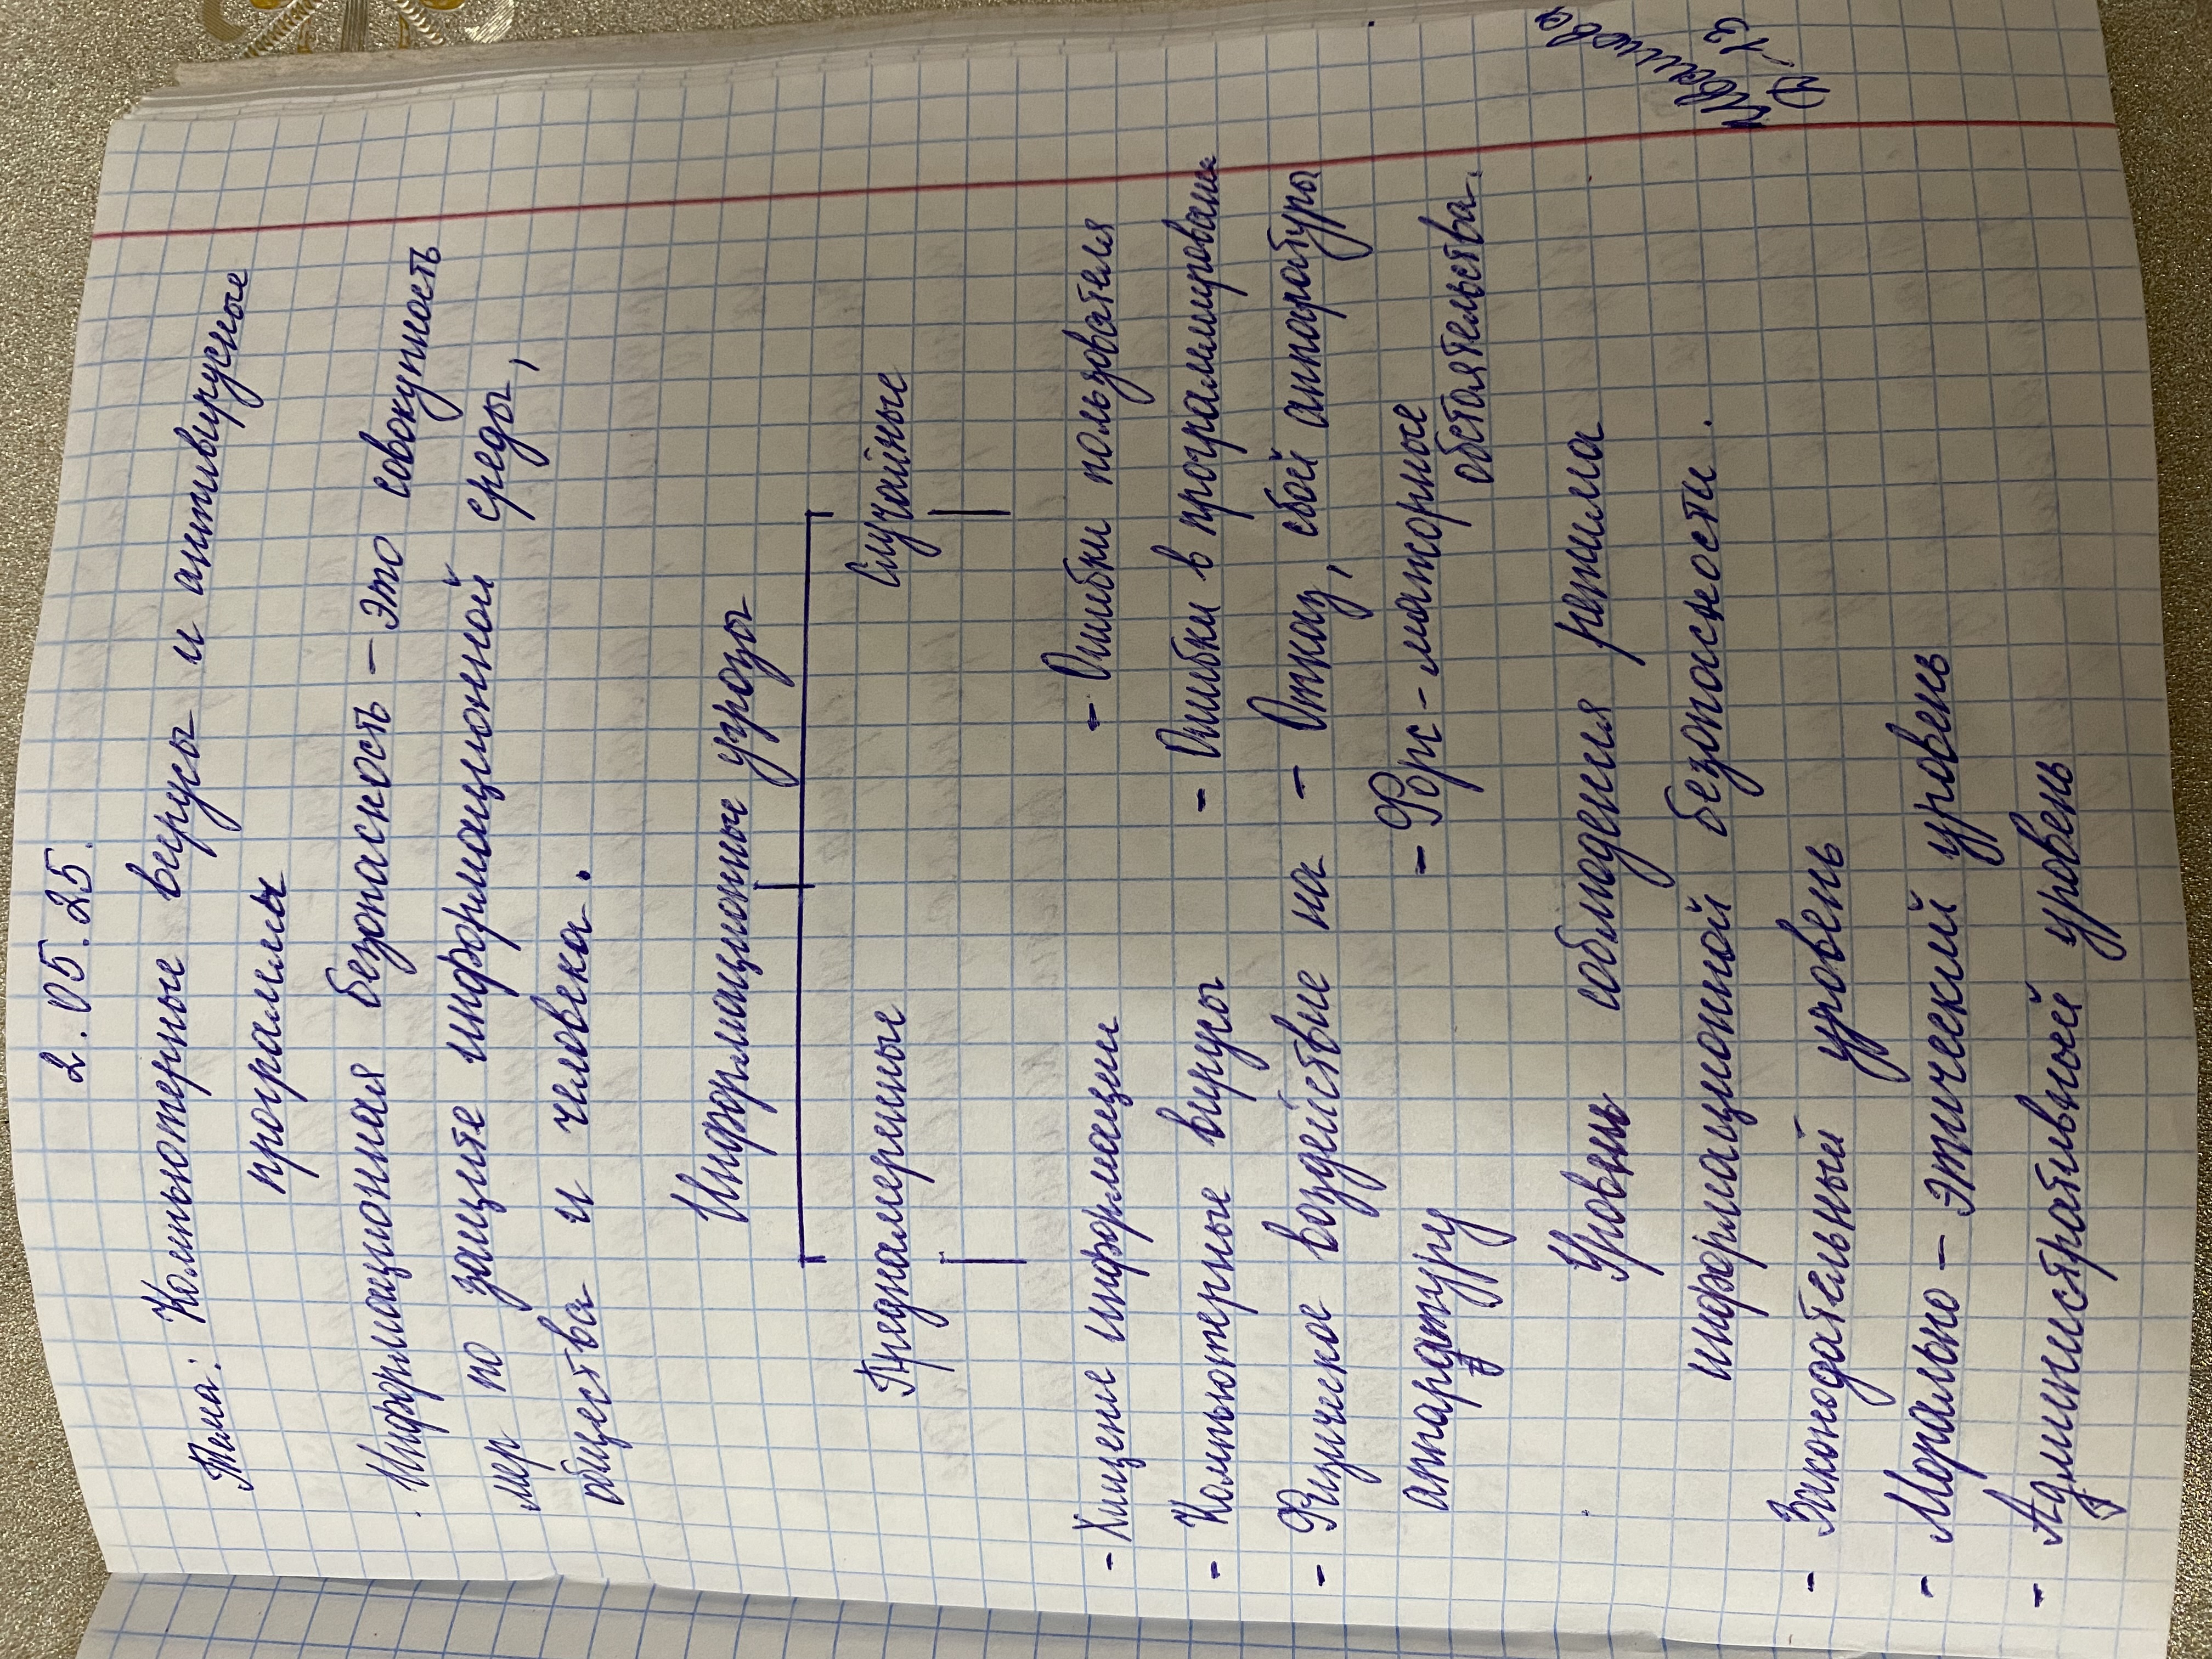 2.05.25.
Тема: Компьютерные вирусы и антивирусные
программы
Информационная безопасность – это совокупность
мер по защите информационной среды,
общества и человека.
Информационные угрозы
Преднамеренные Случайные
- Хищение информации - Ошибки пользователя
- Компьютерные вирусы - Ошибки в программировани
- Физическое воздействие на - Отказ, сбой аппаратуры
аппаратуру - Форс-мажорные
обстоятельства.
Уровень соблюдения режима
информационной безопасности.
- Законодательный уровень
- Морально – этический уровень
- Административный уровень